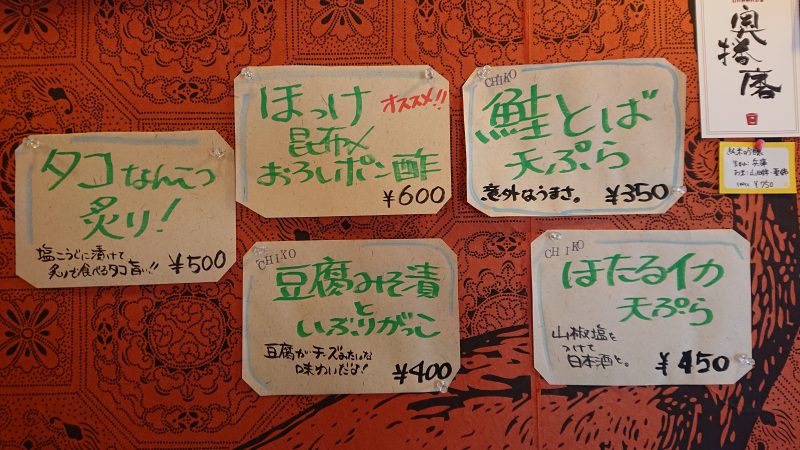 タコなんこつ
炙り!
塩こうじに漬けて
炙りで食べるタコ旨い!!
¥500
ほっけ
オススメ!!
昆布〆
おろしポン酢
¥600
CHIKO
鮭とば
天ぷら
意外なうまさ。
¥350
CHIKO
豆腐みそ漬
と
いぶりがっこ
豆腐がチーズみたいな
味わいだな!
¥400
CHIKO
ほたるイカ
天ぷら
山椒塩を
つけて
日本酒と。
¥450
奥播磨
純米吟醸
兵庫
¥750